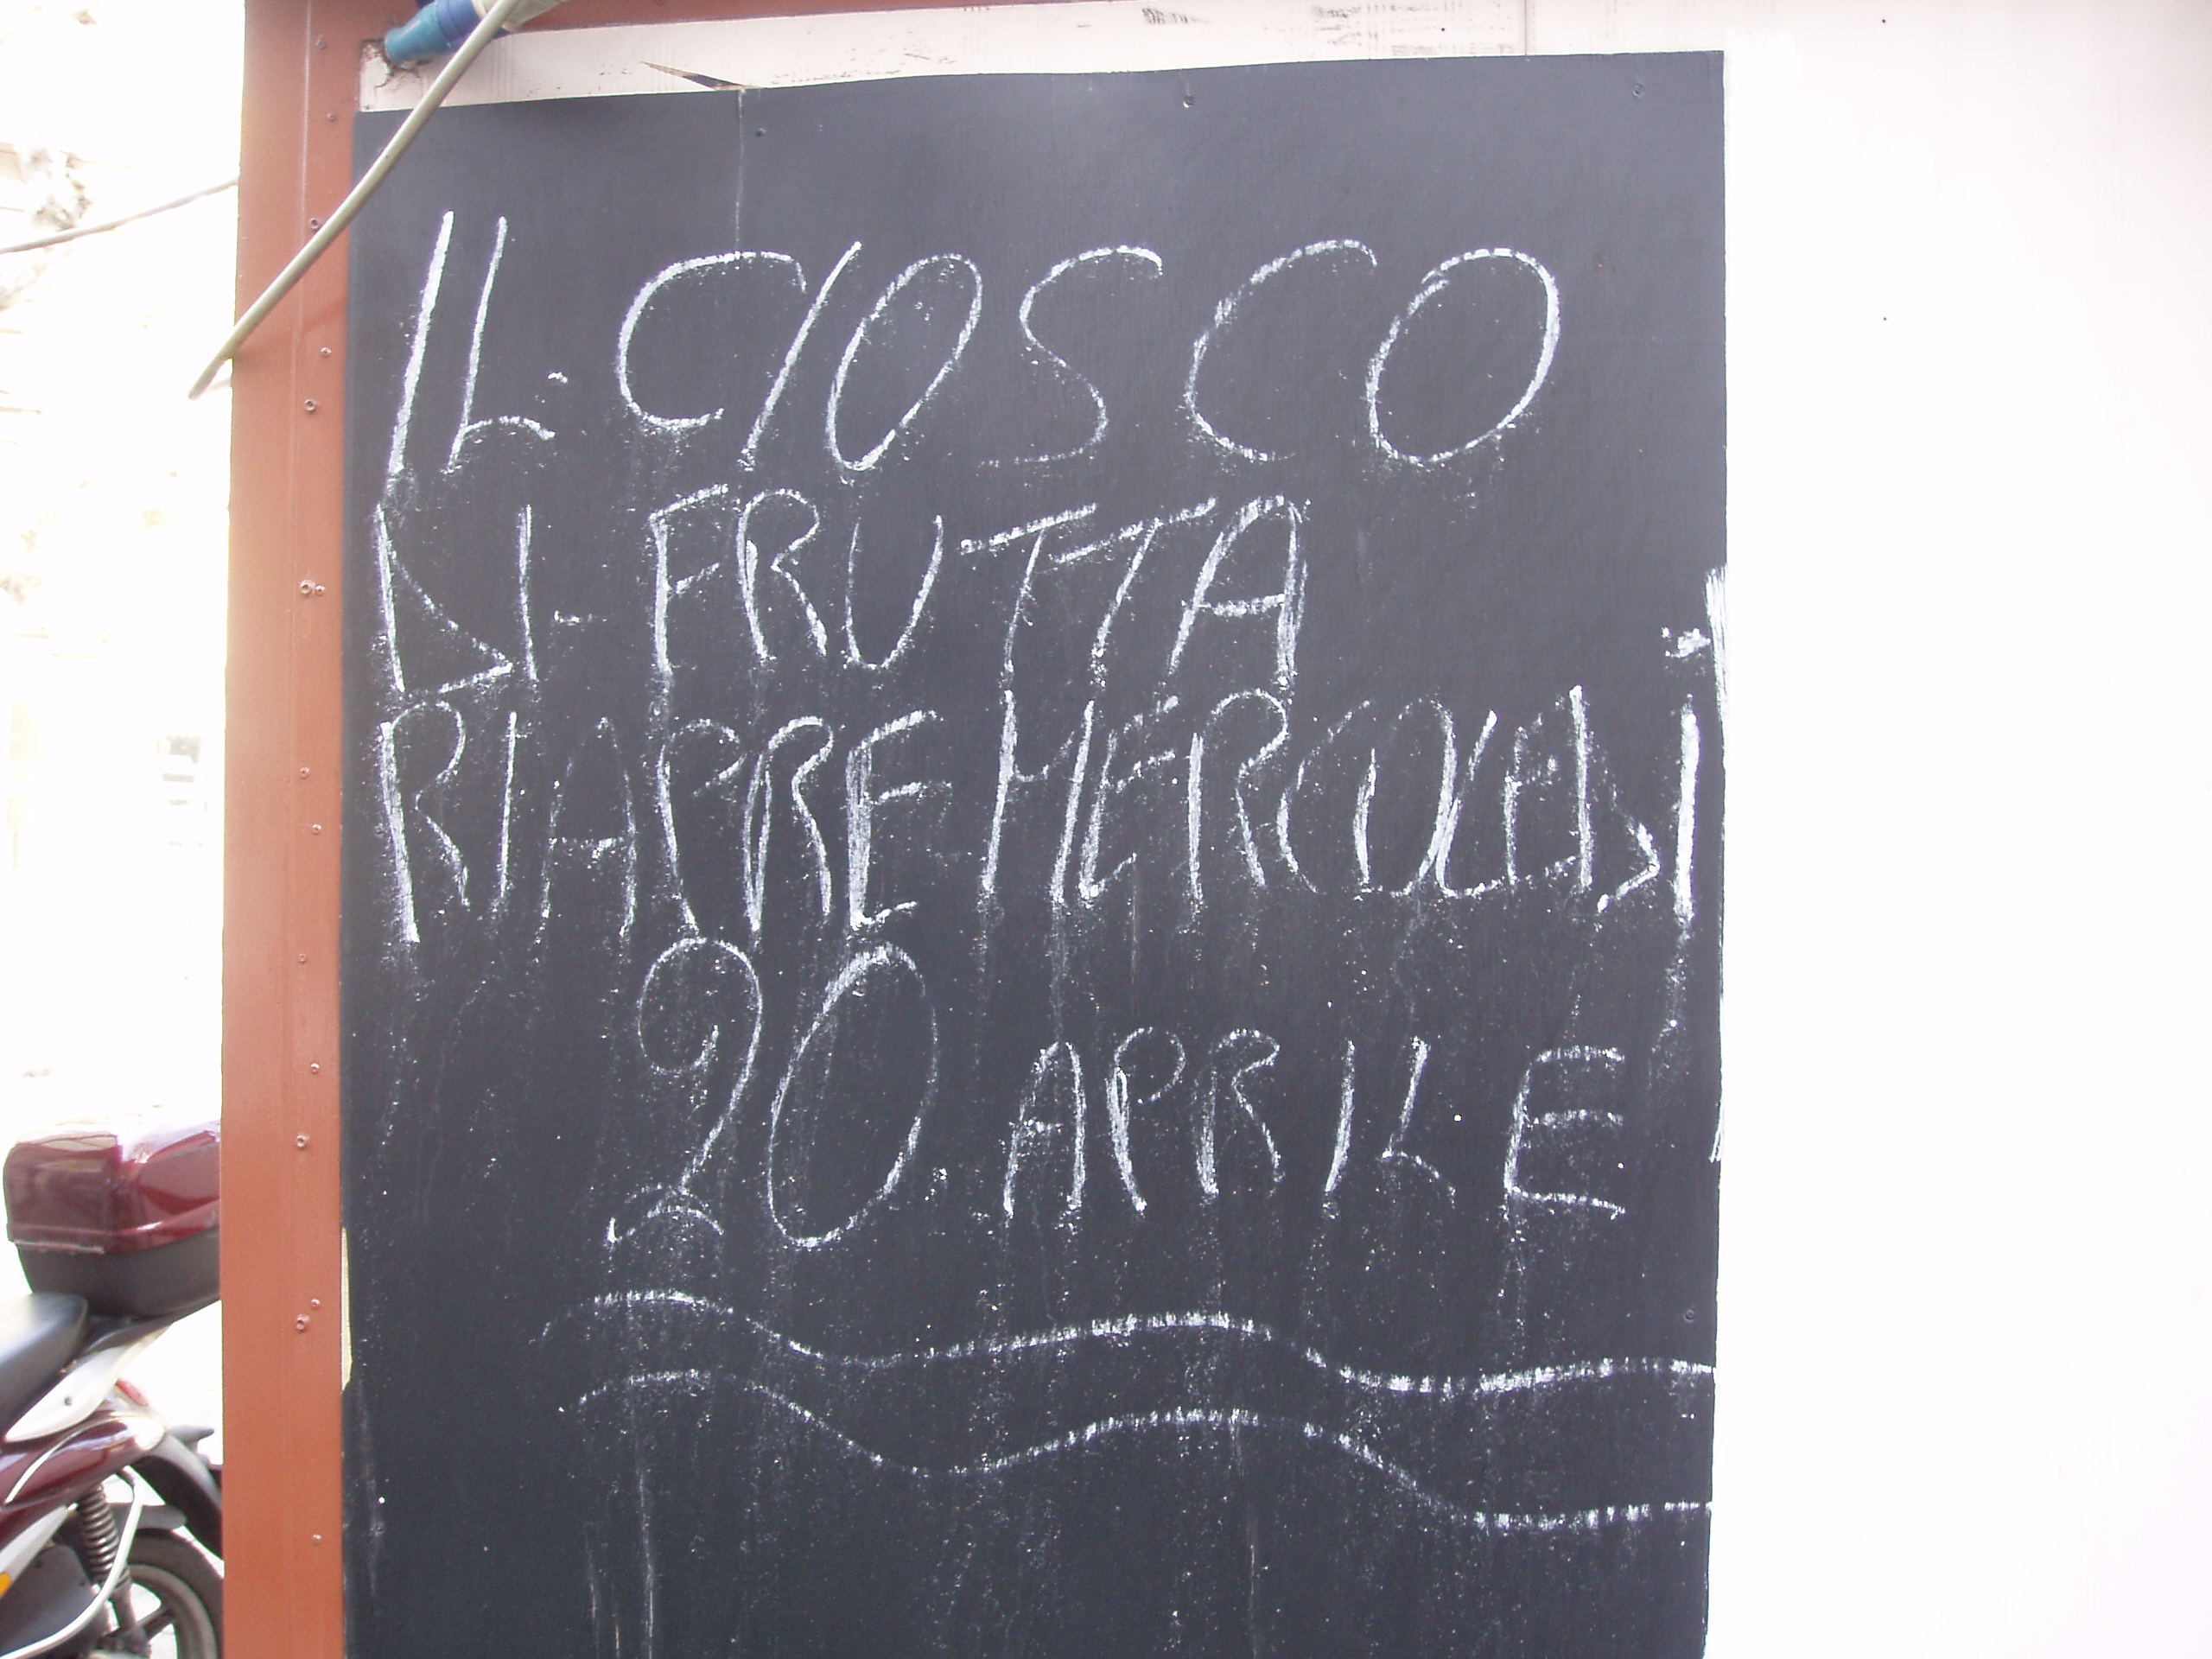 IL. CIOSCO
DI- FRUTTA
RIAPRE MERCOLEDI
20. APRILE